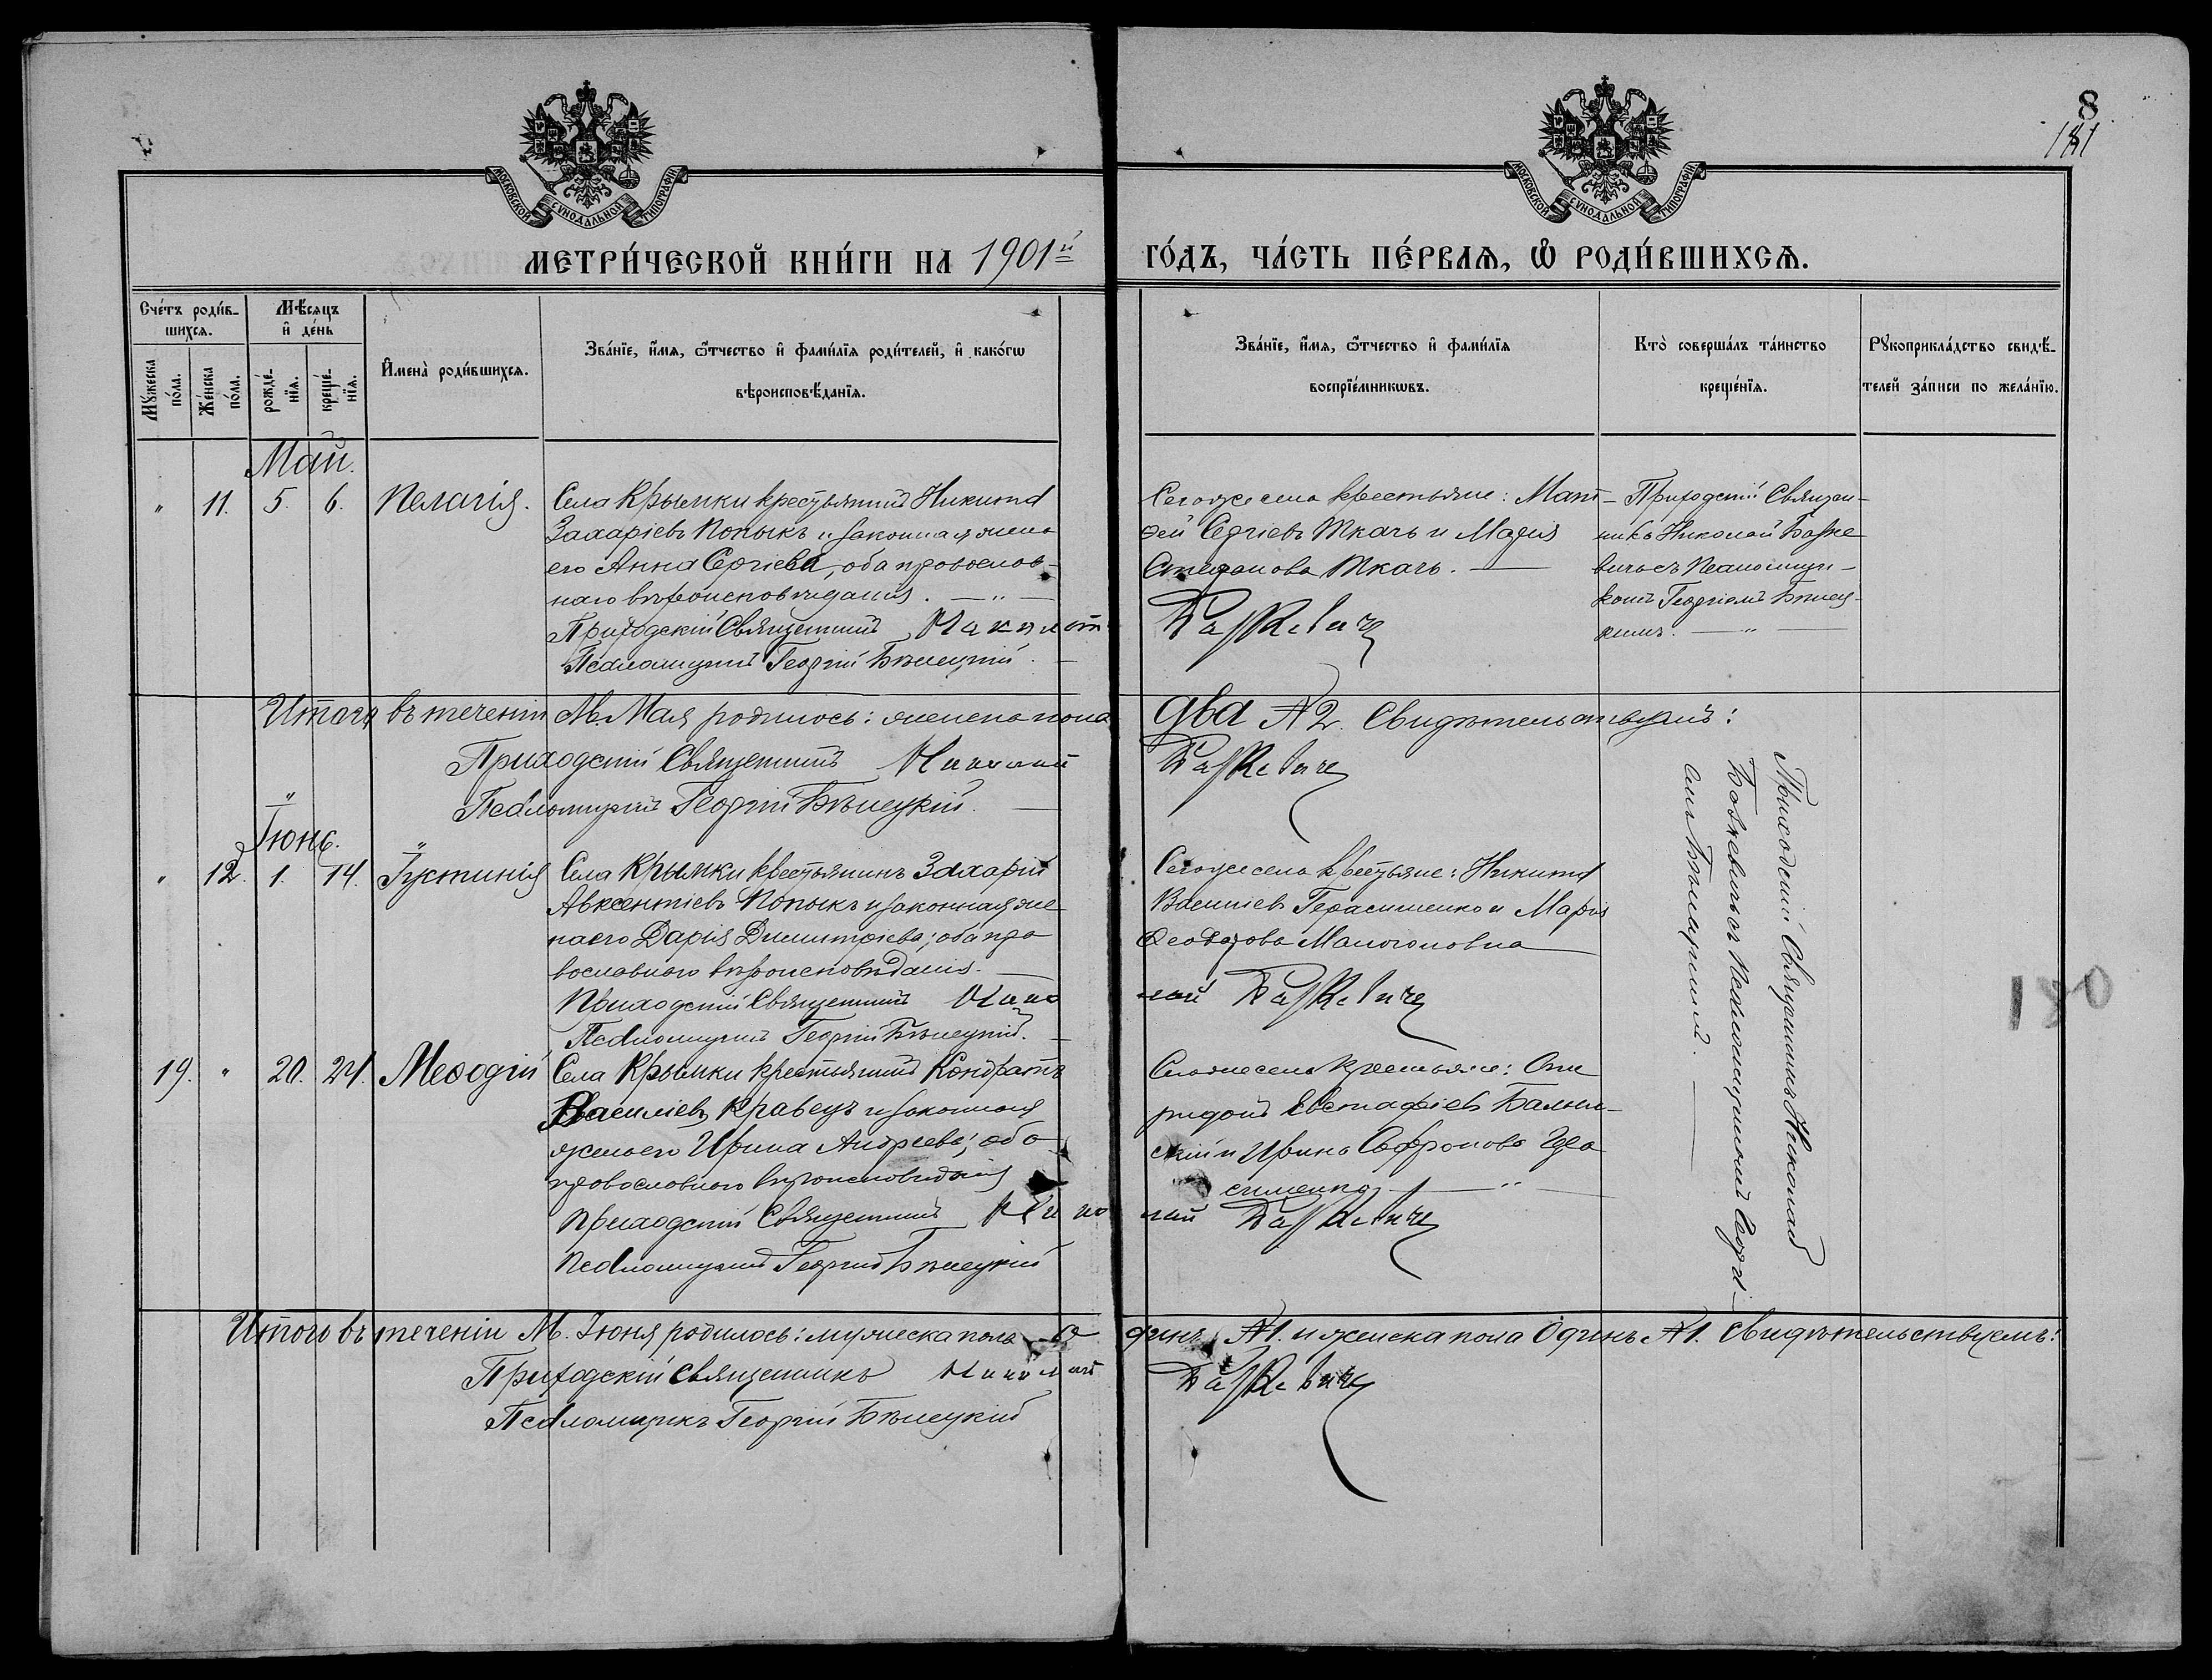 8
181
МОСКОВСКОЙ СѴНОДАЛЬНОЙ ТИПОГРАФІИ
МОСКОВСКОЙ СѴНОДАЛЬНОЙ ТИПОГРАФІИ
МЕТРИ́ЧЕСКОЙ КНИ́ГИ НА 1901й ГО́ДЪ, ЧА́СТЬ ПЕ́РВАѦ, Ѡ҆ РОДИ́ВШИХСѦ.
Сче́тъ роди́в-
шихсѧ.
Мꙋ́жеска по́ла.
Же́нска по́ла.
Мѣ́сѧцъ и҆ де́нь
рожде́-нїѧ.
креще́-нїѧ.
И҆мена̀ роди́вшихсѧ.
Зва́нїе, и҆́мѧ, ѻ҆́тчество и҆ фами́лїѧ роди́телей, и҆ како́гѡ
вѣроисповѣ́данїѧ.
Зва́нїе, и҆́мѧ, ѻ҆́тчество и҆ фами́лїѧ
воспрїе́мникѡвъ.
Кто̀ соверша́лъ та́инство
креще́нїѧ.
Рꙋкоприкла́дство свидѣ́-
телей за́писи по жела́нїю.
Май.
" 11. 5. 6. Пелагія.
Села Крымки крестьянинъ Никита
Захаріевъ Копыкъ и законная жена
его Анна Сергіева, оба православ-
наго вѣроисповѣданія. — " —
Приходскій Священникъ Николай
Псаломщикъ Георгій Бѣлецкій. —
Тогоже села крестьяне: Мат-
ѳей Сергіевъ Ткачъ и Марія
Стефанова Ткачъ. —
Базкевичъ
Приходскій Священ-
никъ Николай Базке
вичъ съ Псаломщи-
комъ Георгіемъ Бѣлец-
кимъ. — " —
Итого въ теченіи М. Мая родилось: женска пола два №2. Свидѣтельствуемъ:
Приходскій Священникъ Николай Базкевичъ
Псаломщикъ Георгій Бѣлецкій. —
"
Іюнь.
" 12. 1. 14. Іустинія
Села Крымки крестьянинъ Захарій
Авксентіевъ Копыкъ и законная же
на его Дарія Димитріева; оба пра
вославнаго вѣроисповѣданія. —
Приходскій Священникъ Нико
лай Базкевичъ
Псаломщикъ Георгій Бѣлецкій. —
Тогоже села крестьяне: Никита
Василіевъ Герасименко и Марія
Ѳеодорова
Приходскій Священникъ Николай
Базкевичъ съ Псаломщикомъ Георгі-
емъ Бѣлецкимъ. —
180
19. " 20. 24. Меѳодій
Села Крымки крестьянинъ Кондратъ
Василіевъ Кравецъ и законная
жена его Ирина Андреева; оба
православнаго вѣроисповѣданія
Приходскій Священникъ Нико
лай Базкевичъ
Псаломщикъ Георгій Бѣлецкій
Тогоже села крестьяне: Спи
ридонъ Евстафіевъ
и Ирина Софронова Гера
сименко — " —
Итого въ теченіи М. Іюня родилось: мужеска пола одинъ №1. и женска пола Одинъ №1. Свидѣтельствуемъ:
Приходскій Священникъ Николай Базкевичъ
Псаломщикъ Георгій Бѣлецкій